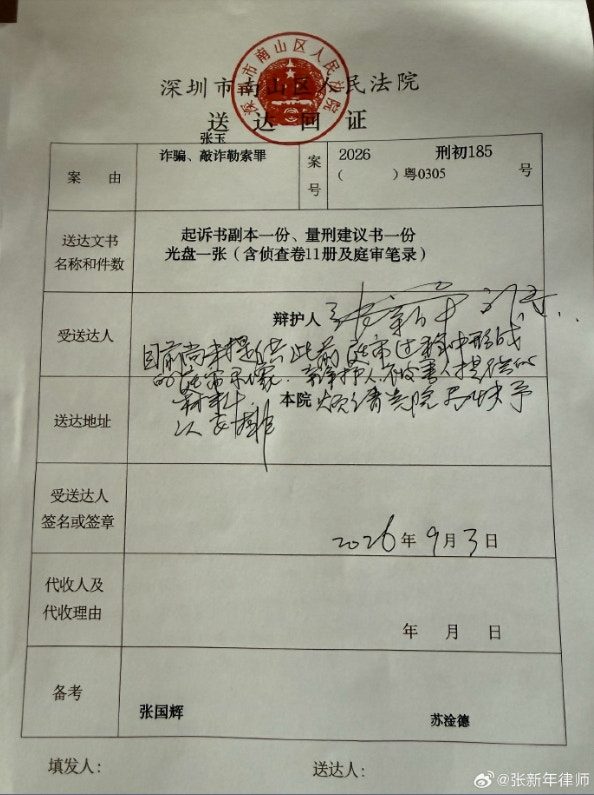 深圳市南山区人民法院
深圳市南山区人民法院
送达回证
案由
张玉
诈骗、敲诈勒索罪
案号
2026 刑初185
（ ）粤0305 号
送达文书
名称和件数
起诉书副本一份、量刑建议书一份
光盘一张（含侦查卷11册及庭审笔录）
受送达人
辩护人 张新年
目前尚未提供此前庭审过程中形成
的庭审录像、辩护人、被害人提供的
材料 烦请贵院尽快予
以安排
送达地址
本院
受送达人
签名或签章
2026年9月3日
代收人及
代收理由
年 月 日
备考
张国辉 苏淦德
填发人： 送达人：
@张新年律师